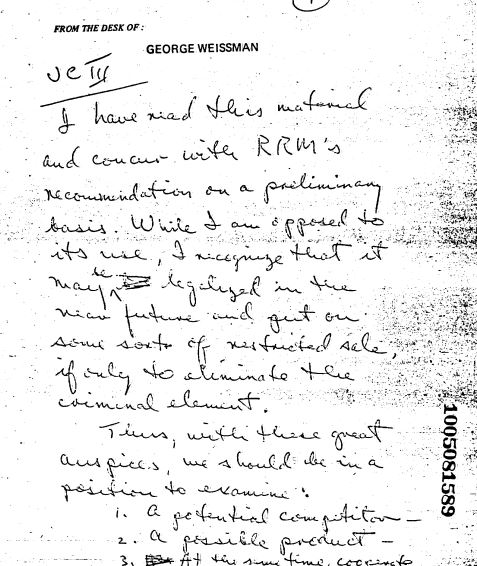 FROM THE DESK OF :
GEORGE WEISSMAN
JC III
I have read this material
and concur with RRM's
recommendation on a preliminary
basis. While I am opposed to
its use, I recognize that it
may be legalized in the
near future and put on
some sort of restricted sale,
if only to eliminate the
criminal element.
Thus, with these great
auspices, we should be in a
position to examine:
1. A potential competition —
2. A possible product —
3. At the same time, cooperate
1005081589